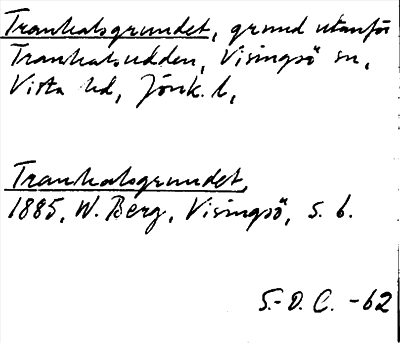 Tranhalsgrundet, grund utanför
Tranhalsudden, Visingsö sn,
Vista hd, Jönk. l,
Tranhalsgrundet,
1885, W. Berg, Visingsö, s. 6.
S.-O. C. -62